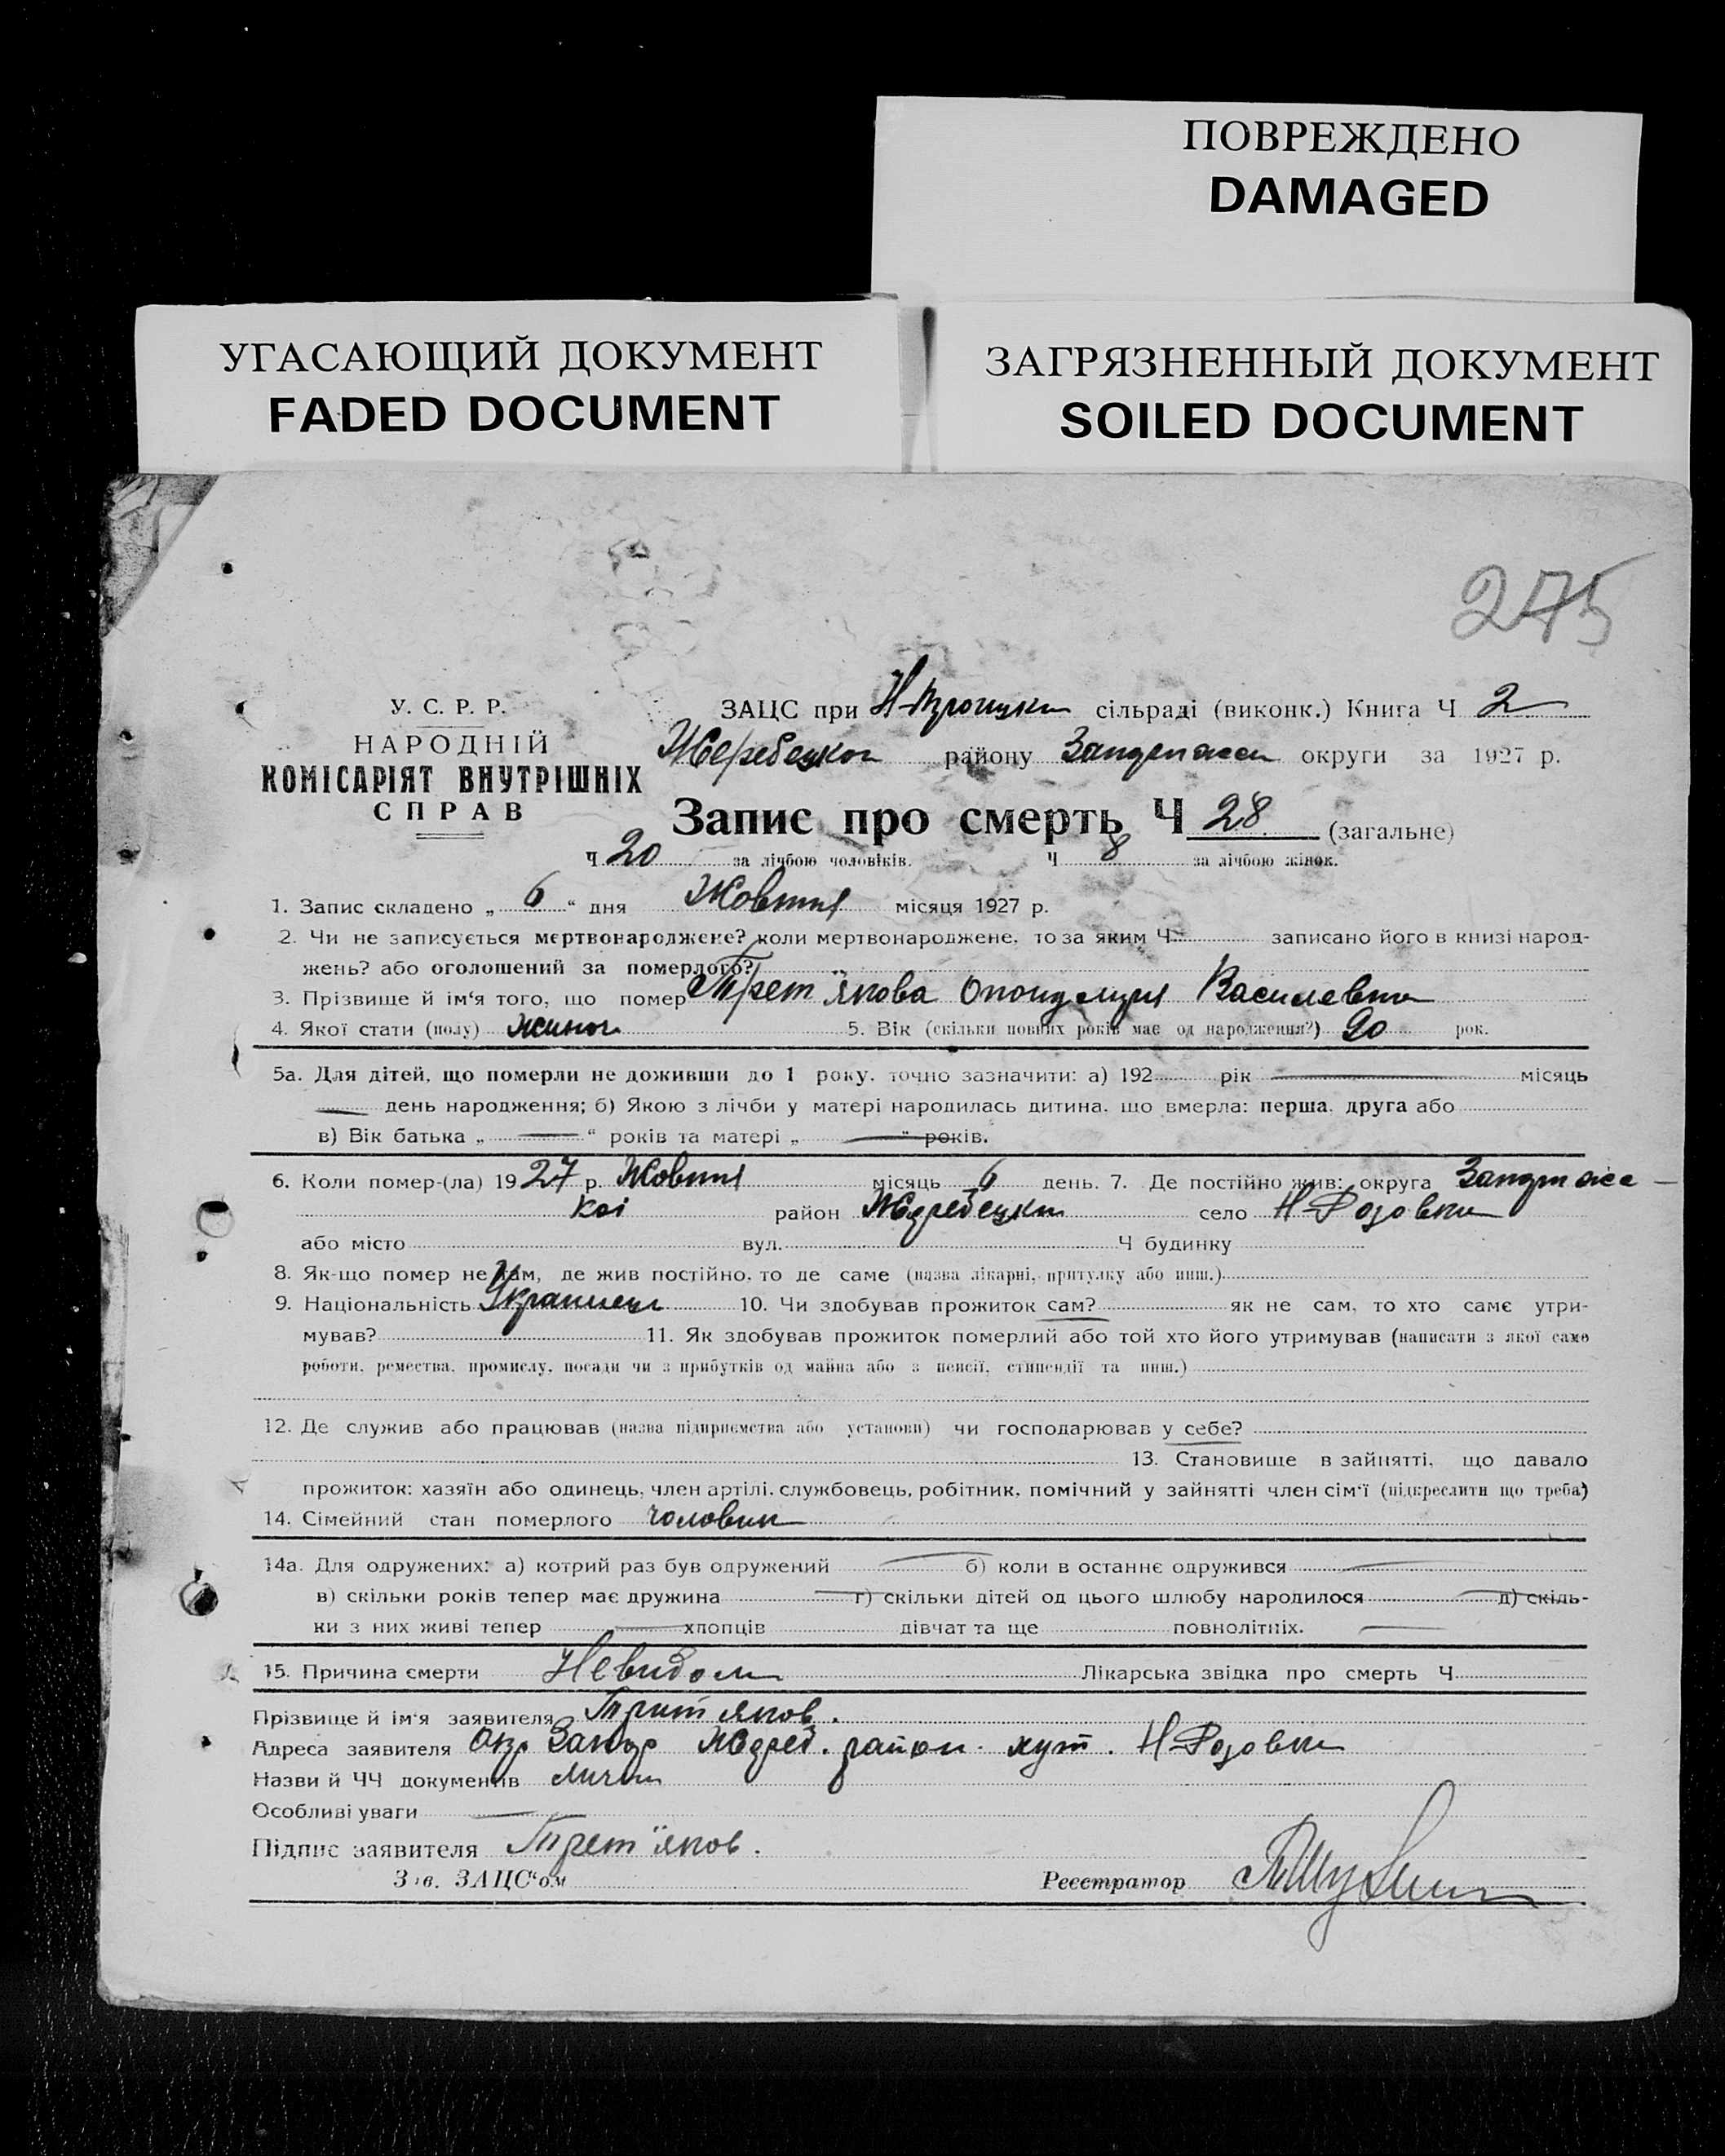 ПОВРЕЖДЕНО
DAMAGED
УГАСАЮЩИЙ ДОКУМЕНТ
FADED DOCUMENT
ЗАГРЯЗНЕННЫЙ ДОКУМЕНТ
SOILED DOCUMENT
275
У. С. Р. Р.
НАРОДНІЙ
КОМІСАРІЯТ ВНУТРІШНІХ
СПРАВ
ЗАЦС при Н-Троицки сільраді (виконк.) Книга Ч 2
Жеребецког району округи за 1927 р.
Запис про смерть Ч 28 (загальне)
Ч 20 за лічбою чоловіків. Ч 8 за лічбою жінок.
1. Запис складено „ 6 “ дня Жовтня місяця 1927 р.
2. Чи не записується мертвонароджене? коли мертвонароджене, то за яким Ч записано його в книзі народ-
жень? або оголошений за померлого?
3. Прізвище й ім‘я того, що помер Трет'якова Василевна
4. Якої стати (полу) жиноч 5. Вік (скільки повних років має од народження?) 90 рок.
5а. Для дітей, що померли не доживши до 1 року, точно зазначити: а) 192 рік місяць
день народження; б) Якою з лічби у матері народилась дитина, що вмерла: перша, друга або
в) Вік батька „ “ років та матері „ “ років.
6. Коли помер-(ла) 1927 р. Жовтня місяць 6 день. 7. Де постійно жив: округа
кої район Жеребецки село Н-Розовки
або місто вул. Ч будинку
8. Як-що помер не там, де жив постійно, то де саме (назва лікарні, притулку або инш.)
9. Національність Украинец 10. Чи здобував прожиток сам? як не сам, то хто саме утри-
мував? 11. Як здобував прожиток померлий або той хто його утримував (написати з якої саме
роботи, ремества, промислу, посади чи з прибутків од майна або з пенсії, стипендії та инш.)
12. Де служив або працював (назва підприємства або установи) чи господарював у себе?
13. Становище в зайнятті, що давало
прожиток: хазяїн або одинець, член артілі, службовець, робітник, помічний у зайнятті член сім‘ї (підкреслити що треба)
14. Сімейний стан померлого
14а. Для одружених: а) котрий раз був одружений б) коли в останнє одружився
в) скільки років тепер має дружина г) скільки дітей од цього шлюбу народилося д) скіль-
ки з них живі тепер хлопців дівчат та ще повнолітніх.
15. Причина смерти Невидом Лікарська звідка про смерть Ч
Прізвище й ім‘я заявителя Трит'яков.
Адреса заявителя Окр Запор Жереб. район. хут. Н-Розовки
Назви й ЧЧ документів
Особливі уваги
Підпис заявителя Трет'яков.
Зав. ЗАЦС‘ом Реєстратор